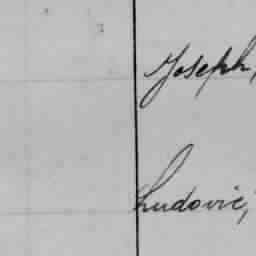 Joseph,
Ludovic,